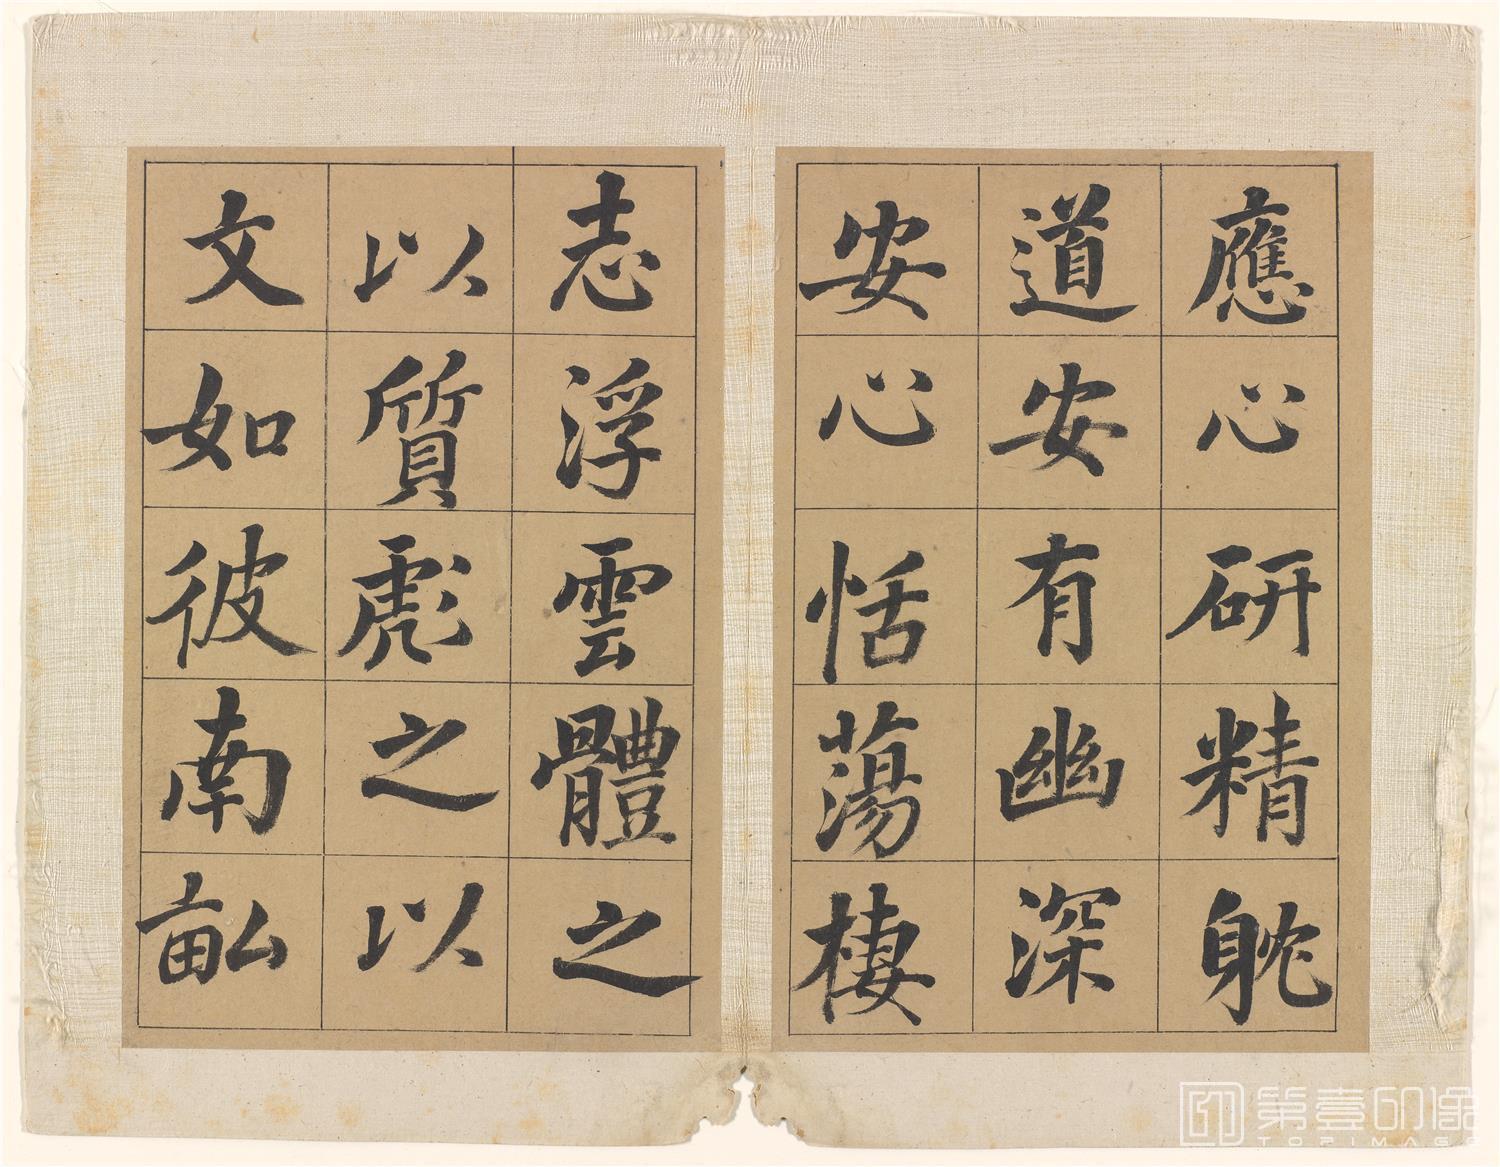 應心研精躭
道安有幽深
安心恬蕩棲
志浮雲體之
以質彪之以
文如彼南畝
第壹印像
TOPIMAGE